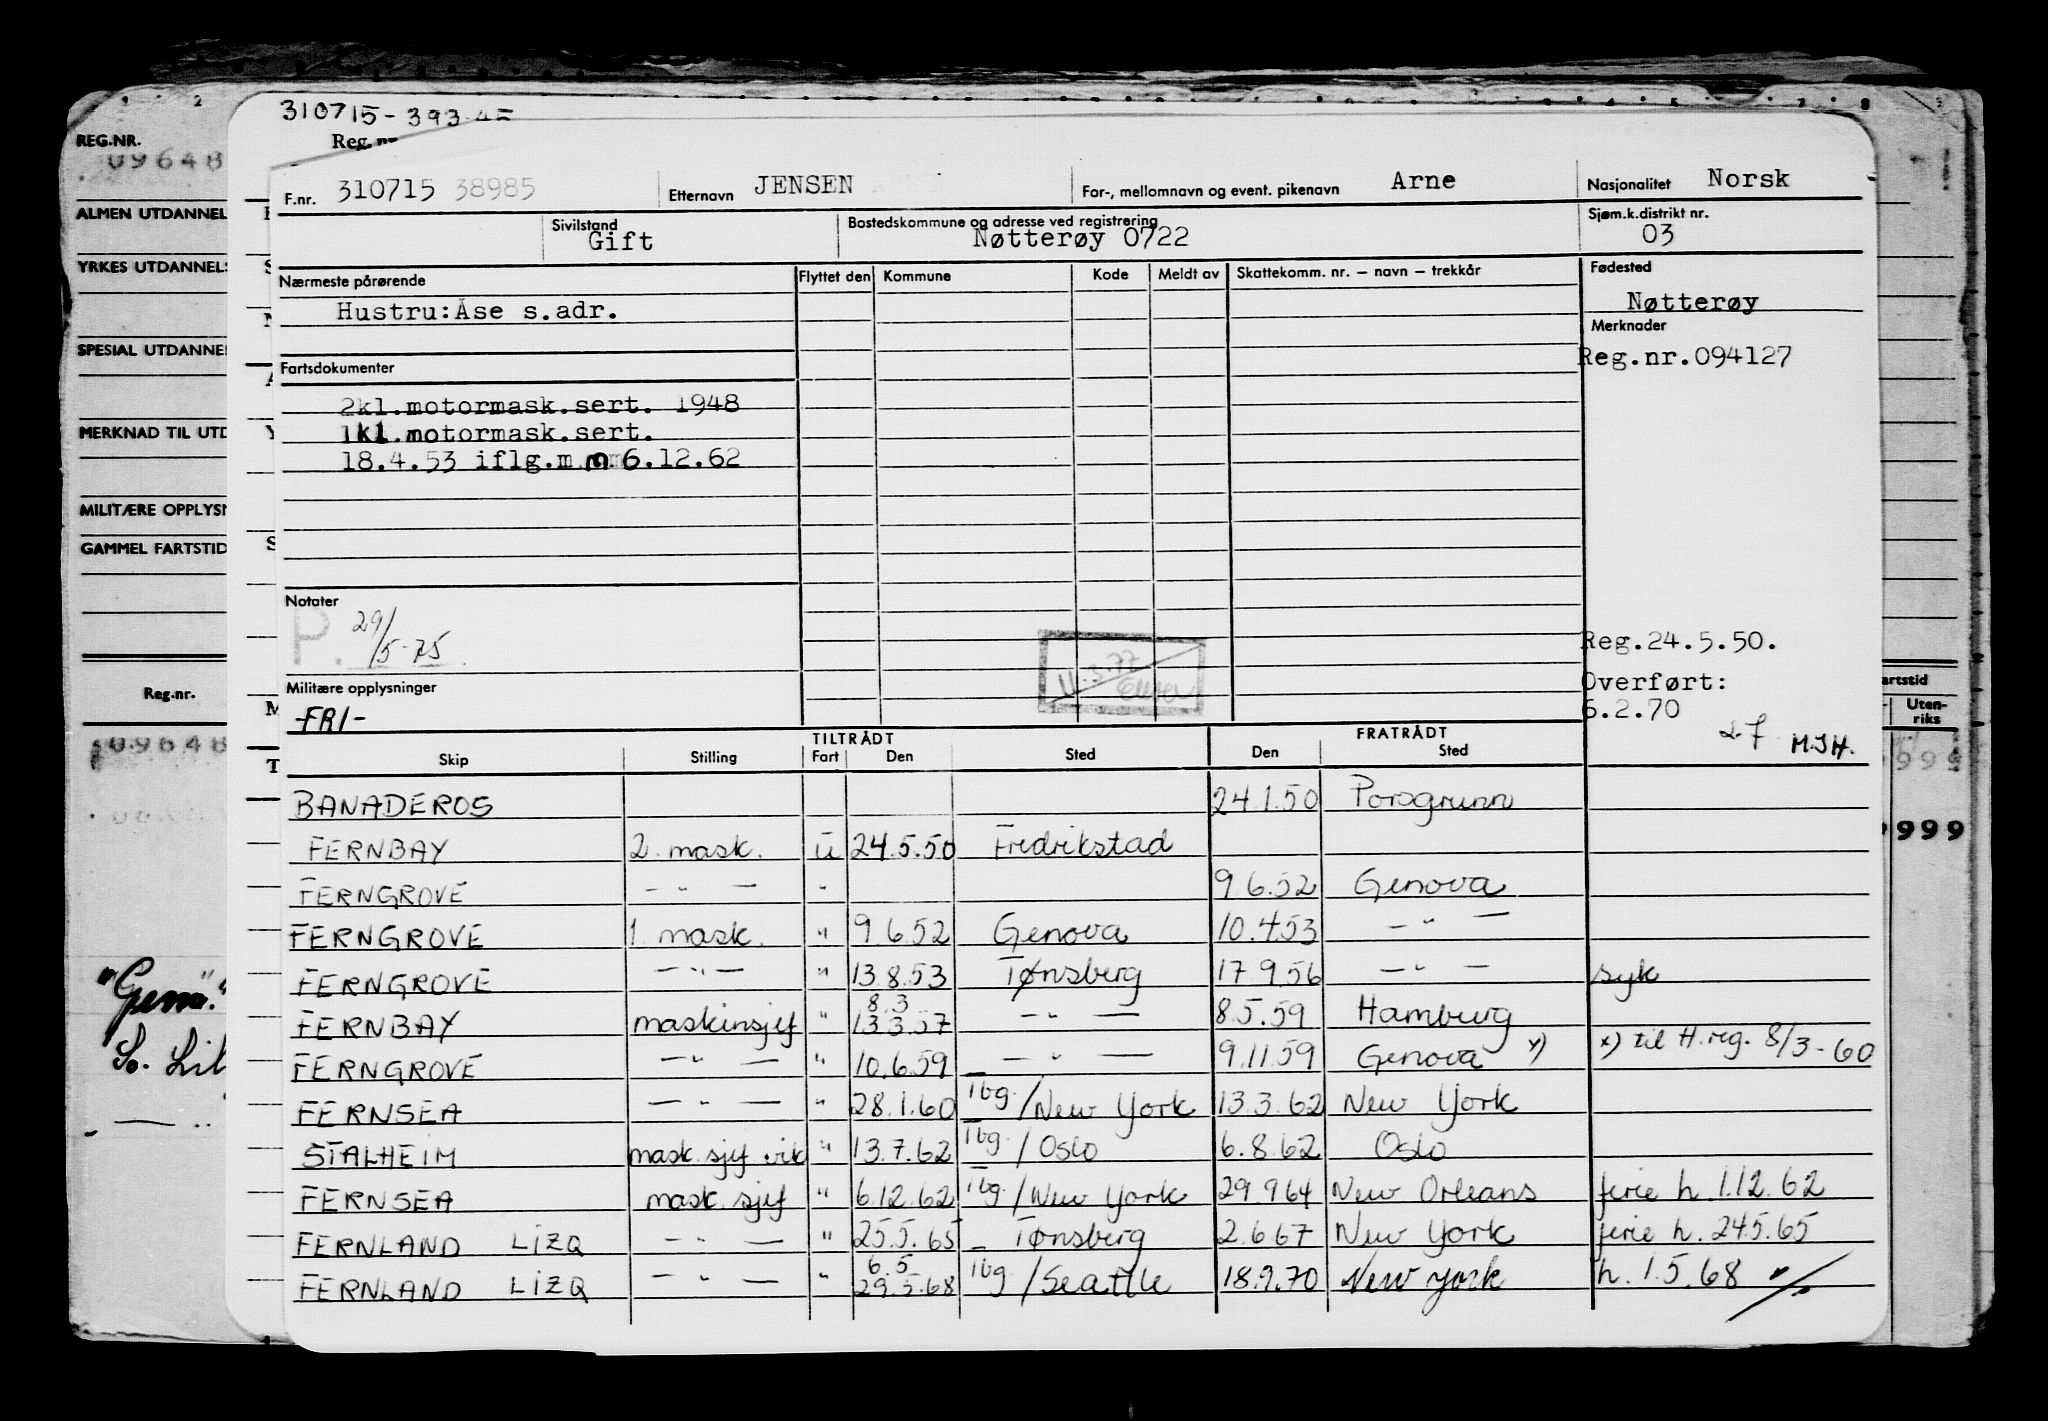 310715-393
Reg. nr
REG.NR.
09648
F.nr. 310715 38985 Etternavn JENSEN For-, mellomnavn og event. pikenavn Arne Nasjonalitet Norsk
ALMEN UTDANNEL
Sivilstand Gift Bostedskommune og adresse ved registrering Nøtterøy 0722 Sjøm.k.distrikt nr. 03
YRKES UTDANNELS
Nærmeste pårørende Flyttet den Kommune Kode Meldt av Skattekomm. nr. – navn – trekkår Fødested
Hustru:Åse s.adr. Nøtterøy
Merknader
SPESIAL UTDANNEL
Reg.nr.094127
Fartsdokumenter
2kl.motormask.sert. 1948
MERKNAD TIL UTD
1kl.motormask.sert.
18.4.53 iflg.m.m 6.12.62
MILITÆRE OPPLYSN
GAMMEL FARTSTID
Notater
P. 29/5-75
11.3.77
Reg.24.5.50.
Militære opplysninger Overført:
Reg.nr. artstid
-FRI- 6.2.70
Uten-
riks
27 M.J.H.
TILTRÅDT FRATRÅDT
Skip Stilling Fart Den Sted Den Sted
09648
BANADEROS 24.1.50 Porsgrunn
FERNBAY 2. mask. U 24.5.50 Fredrikstad
999
FERNGROVE — " — " 9.6.52 Genova
FERNGROVE 1. mask. " 9.6.52 Genova 10.4.53 — " —
FERNGROVE — " — " 13.8.53 Tønsberg 17.9.56 — " — syk
"Gena."
8.3
FERNBAY maskinsjef " 13.3.57 — " — 8.5.59 Hamburg
So. Lil
FERNGROVE — " — " 10.6.59 — " — 9.11.59 Genova x) x) til H.reg. 8/3-60
FERNSEA — " — " 28.1.60 Tbg/New York 13.3.62 New York
STALHEIM mask.sjef vik " 13.7.62 Tbg./Oslo 6.8.62 Oslo
FERNSEA mask.sjef " 6.12.62 Tbg./New York 29.9.64 New Orleans ferie h. 1.12.62
FERNLAND LIZQ — " — " 25.5.65 Tønsberg 2.6.67 New York ferie h. 24.5.65
6.5
FERNLAND LIZQ — " — " 29.5.68 Tbg/Seattle 18.9.70 New York h. 1.5.68 ./.